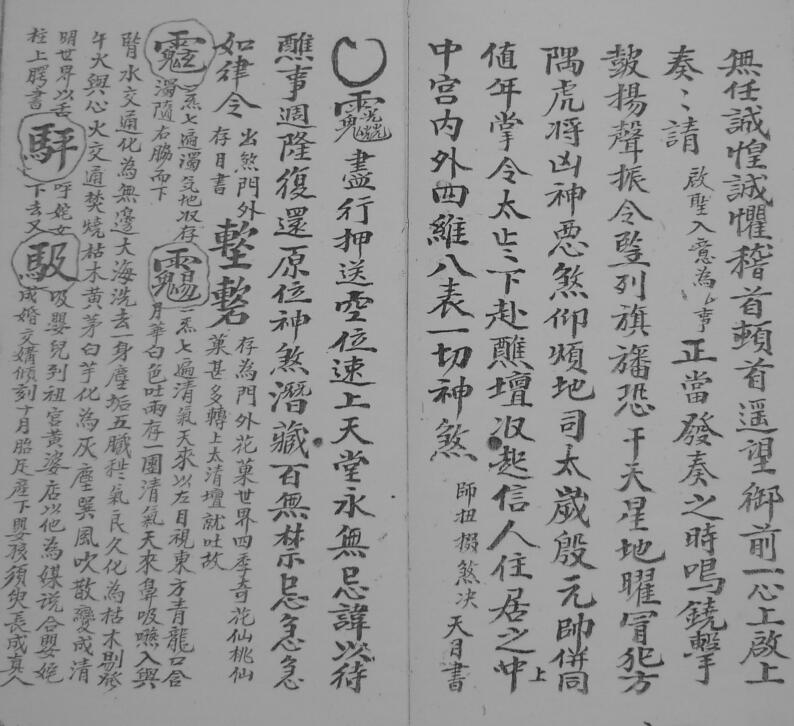 無任誠惶誠懼稽首頓首遥望御前一心上啟上
奏〻請啟聖入意為ム事正當發奏之時鳴鐃擊
皷揚聲振令竪列旗旛恐干天星地曜冒犯方
隅虎將凶神悪煞仰煩地司太歲殷元帥併同
值年掌令太歲下赴醮壇収起信人住居之中上
中宮内外四維八表一切神煞師扭掇煞决天目書
盡行押送空位速上天堂永無忌諱以待
醮事週隆復還原位神煞潛藏百無禁忌急急
如律令出煞門外存目書存為門外花菓世界四季奇花仙桃仙
菓甚多轉上太清壇就吐故
一炁七遍濁氣地収存
濁隨右脇而下一炁七遍清氣天來以左目視東方青龍口含
月華白色吐兩存一團清氣天來鼻吸嚥入與
腎水交通化為無邊大海洗去一身塵垢五臟秽氣良久化為枯木剔發
午火與心火交通焚燒枯木黄茅白芋化為灰塵巽風吹散變成清
明世界以舌
柱上腭書呼姹女
下去又吸嬰兒到祖宮黄婆店以他為媒说合嬰姹
成婚交媾傾刻十月胎足産下嬰孩須臾長成真人